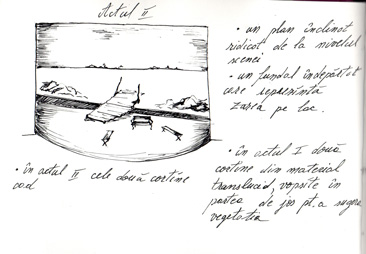 Actul II
• un plan înclinat
ridicat de la nivelul
scenei
• un fundal îndepărtat
care reprezintă
zarea pe lac.
• în actul II cele două cortine
cad
• în actul I două
cortine din material
translucid, vopsite în
partea de jos pt. a sugera
vegetatia